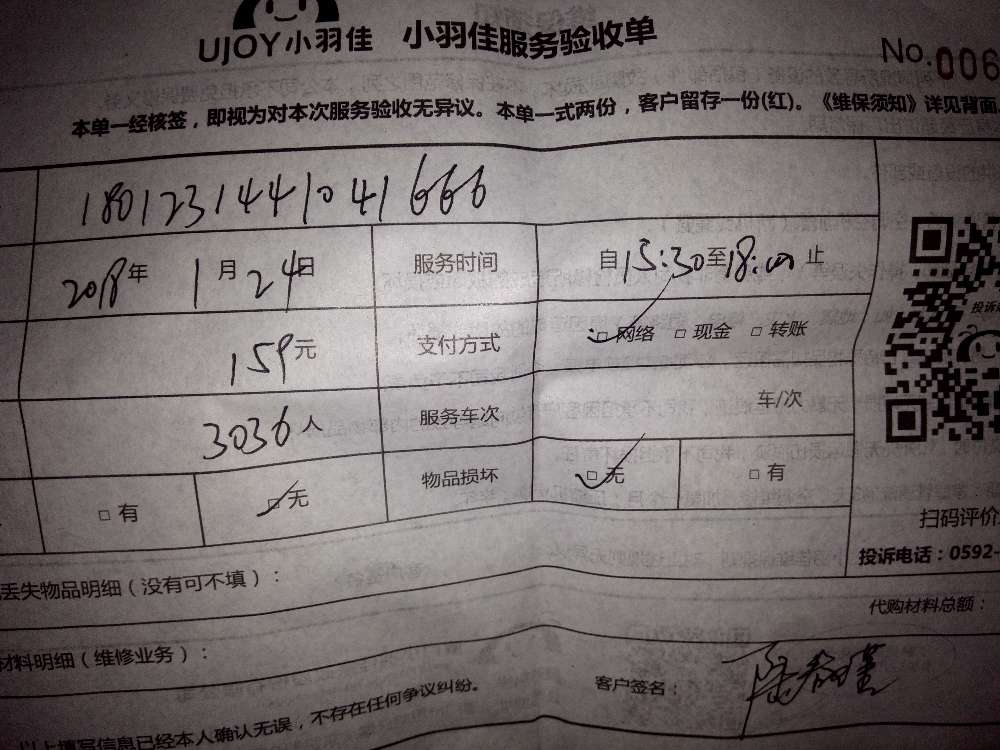 UJOY小羽佳 小羽佳服务验收单
No.006
本单一经核签，即视为对本次服务验收无异议。本单一式两份，客户留存一份(红)。《维保须知》详见背面
1801231441041666
2018年 1月24日 服务时间 自15:30至18:00止
159元 支付方式 □网络 □现金 □转账
3036人 服务车次 车/次
□有 □无 物品损坏 □无 □有
投诉
扫码评价
投诉电话：0592-
丢失物品明细（没有可不填）：
代购材料总额：
材料明细（维修业务）：
客户签名：
以上填写信息已经本人确认无误，不存在任何争议纠纷。